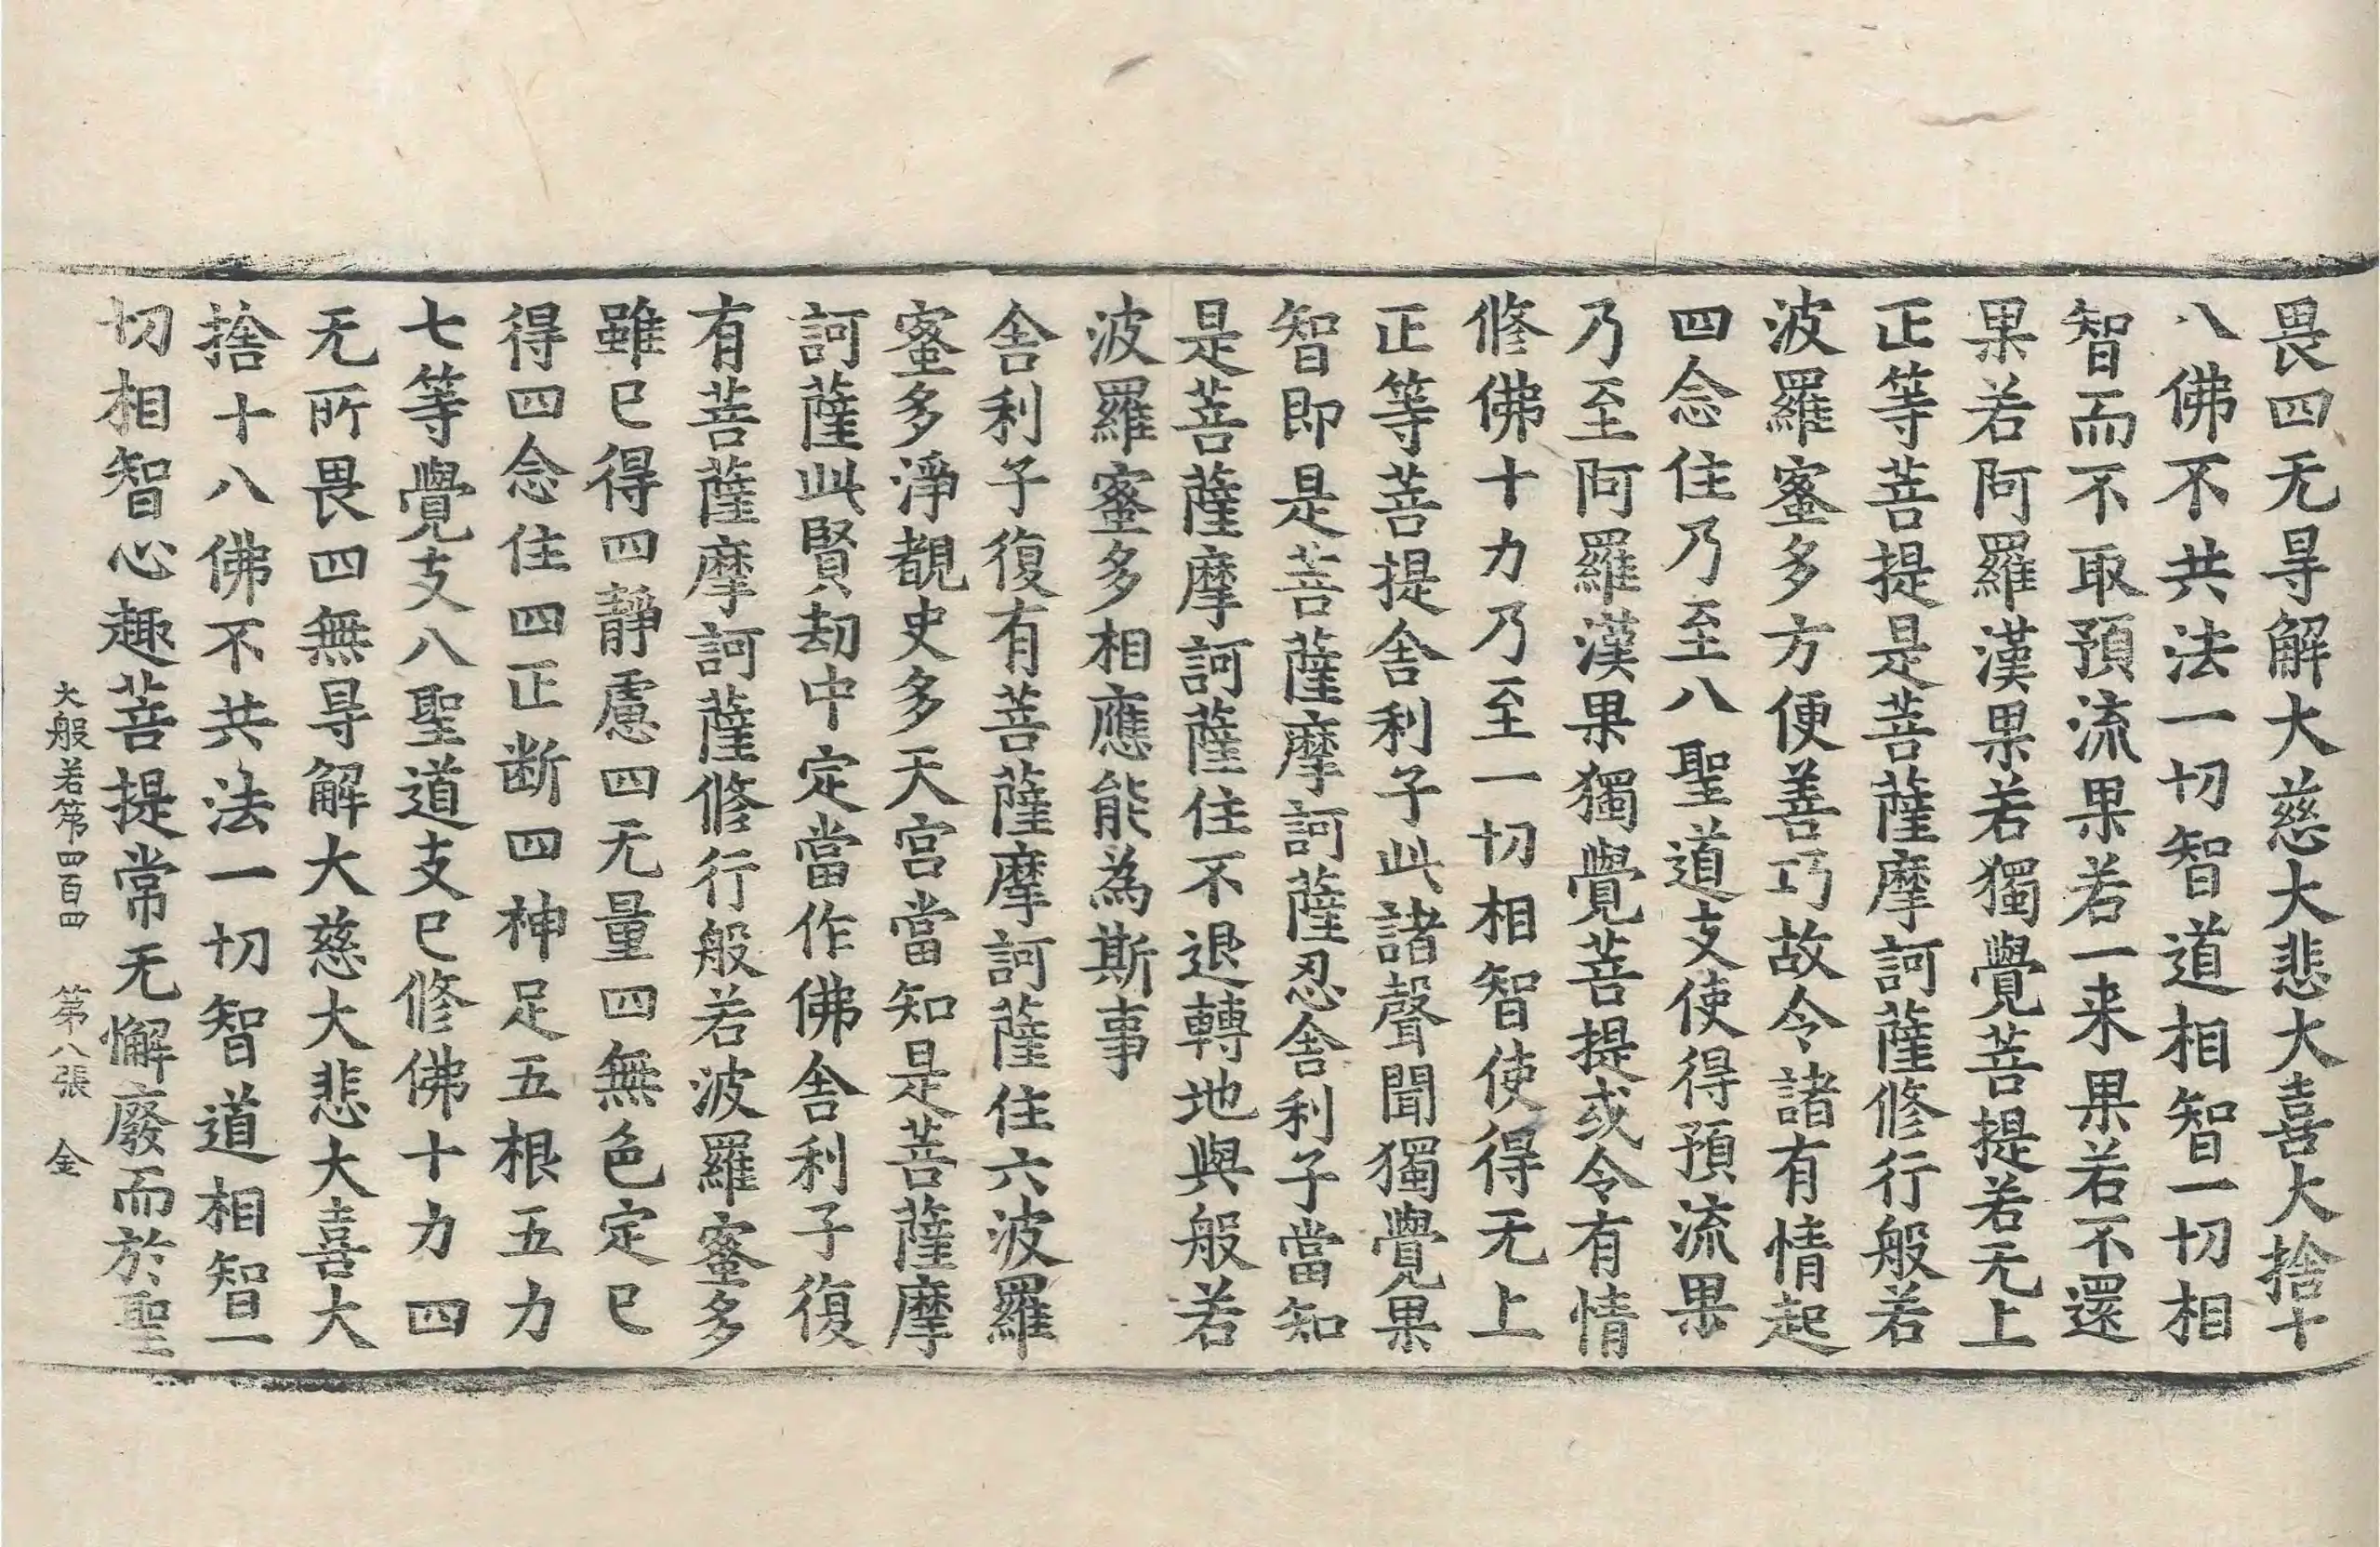 畏四无㝵解大慈大悲大喜大捨十
八佛不共法一切智道相智一切相
智而不取預流果若一来果若不還
果若阿羅漢果若獨覺菩提若无上
正等菩提是菩薩摩訶薩修行般若
波羅蜜多方便善巧故令諸有情起
四念住乃至八聖道支使得預流果
乃至阿羅漢果獨覺菩提或令有情
修佛十力乃至一切相智使得无上
正等菩提舍利子此諸聲聞獨覺果
智即是菩薩摩訶薩忍舍利子當知
是菩薩摩訶薩住不退轉地與般若
波羅蜜多相應能為斯事
舍利子復有菩薩摩訶薩住六波羅
蜜多淨覩史多天宮當知是菩薩摩
訶薩此賢劫中定當作佛舍利子復
有菩薩摩訶薩修行般若波羅蜜多
雖已得四靜慮四无量四無色定已
得四念住四正断四神足五根五力
七等覺支八聖道支已修佛十力四
无所畏四無㝵解大慈大悲大喜大
捨十八佛不共法一切智道相智一
切相智心趣菩提常无懈廢而於聖
大般若第四百四　第八張　金